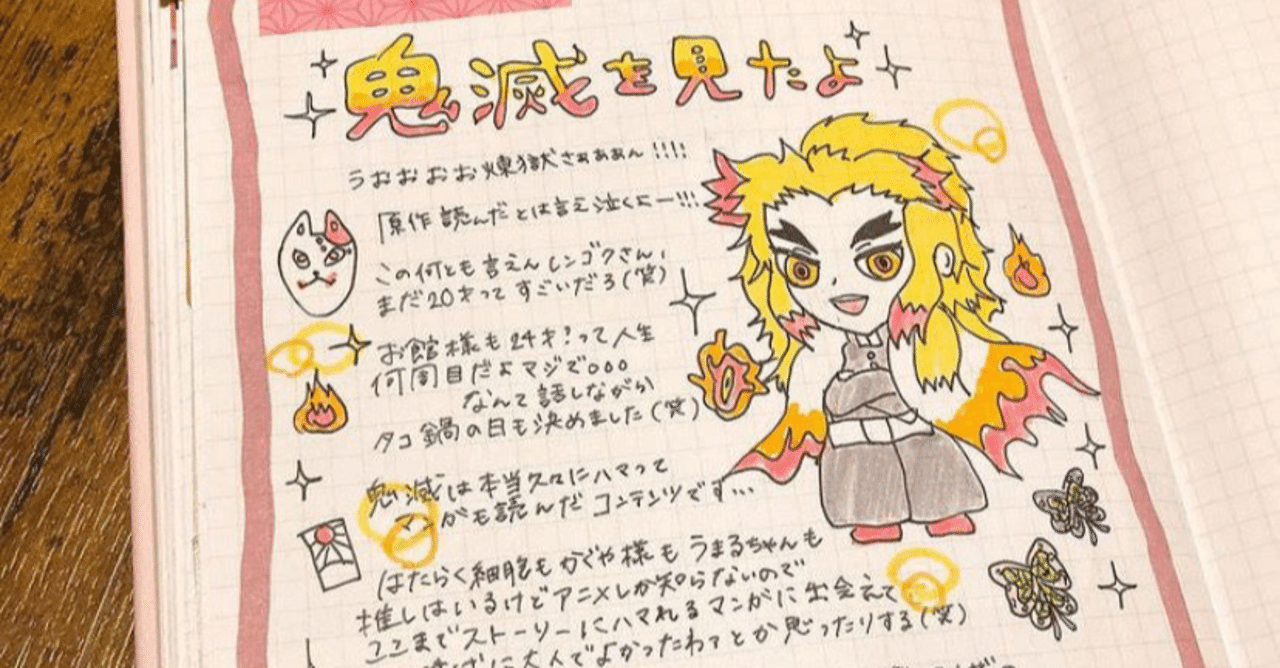 鬼滅を見たよ
うおおおお煉獄さぁぁぁん!!!!
原作読んだとは言え泣くにー!!!
この何とも言えんレンゴクさん、
まだ20才ってすごいだろ(笑)
お館様も24才?って人生
何周目だよマジで。。。
なんて話しながら
タコ鍋の日も決めました(笑)
鬼滅は本当久々にハマって
マンガも読んだコンテンツです…
はたらく細胞もかぐや様もうまるちゃんも
推しはいるけどアニメしか知らないので
ここまでストーリーにハマれるマンガに出会えて
に大人でよかったわーとか思ったりする(笑)